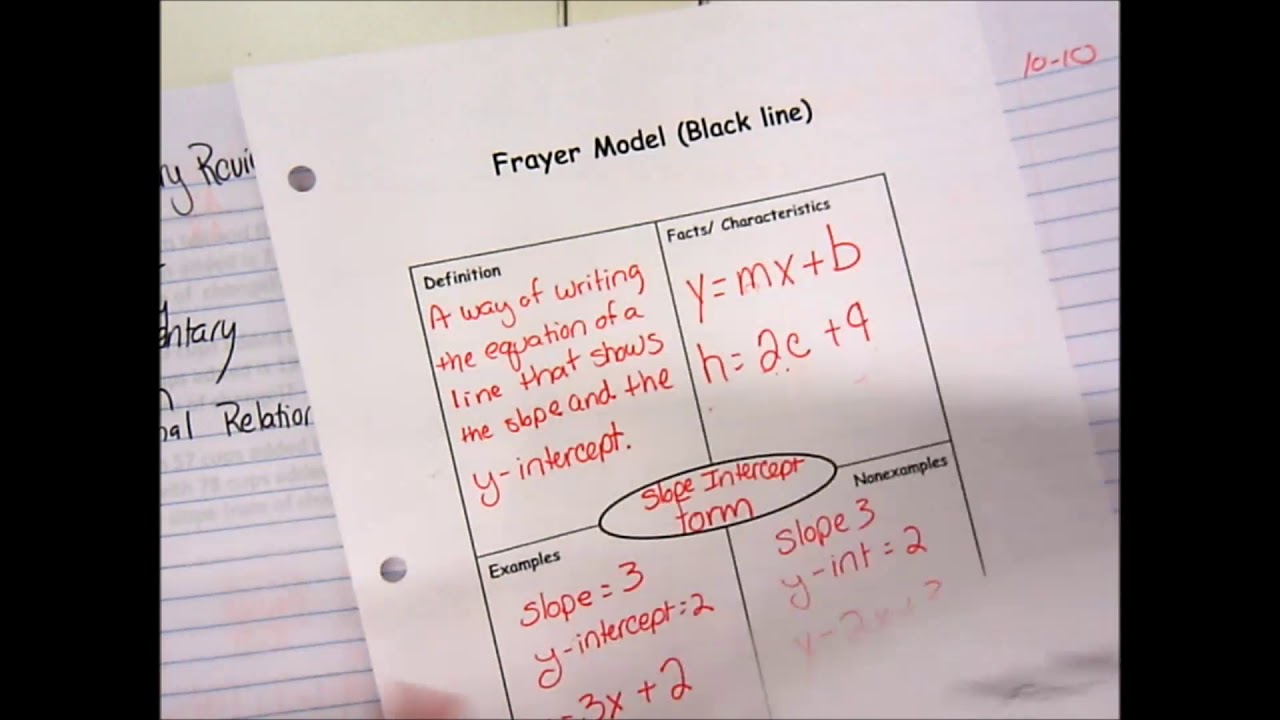 10-10
ry Revi
entary
nal Relation
Frayer Model (Black line)
Definition
A way of writing
the equation of a
line that shows
the slope and the
y-intercept.
Facts/ Characteristics
y=mx+b
h=2c+4
Slope Intercept
form
Examples
slope=3
y-intercept=2
=3x+2
Nonexamples
slope 3
y-int=2